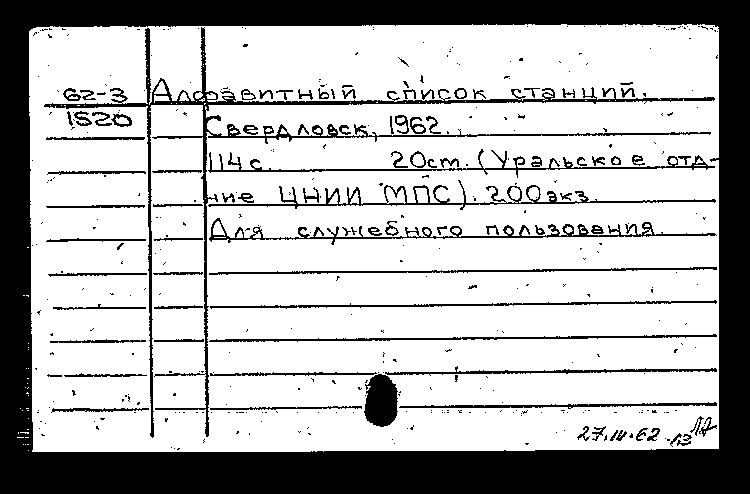 62-3 Алфавитный список станций.
1520 Свердловск, 1962.
114с. 20cm. (Уральское отд-
ние ЦНИИ МПС). 200экз.
Для служебного пользования.
27.IV.62